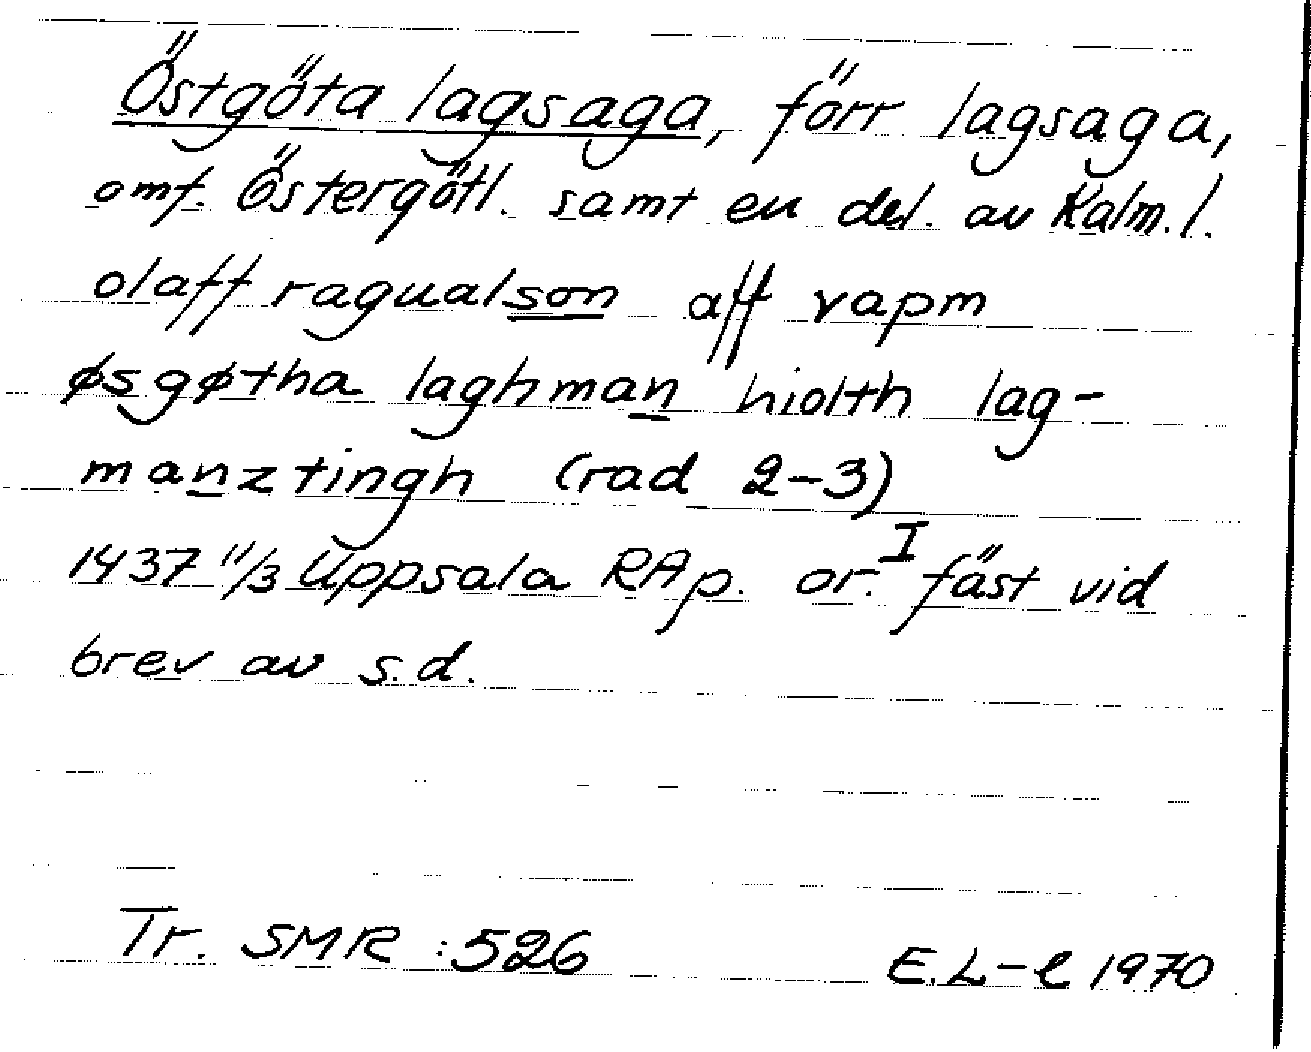 Östgöta lagsaga, förr lagsaga,
omf. Östergötl. samt en del. av Kalm. l.
olaff ragualson aff vapm
øsgøtha laghman hiolth lag-
manztingh (rad 2-3)
1437 11/3 Uppsala RAp. or. I fäst vid
brev av s.d.
Tr. SMR :526 E.L-l 1970